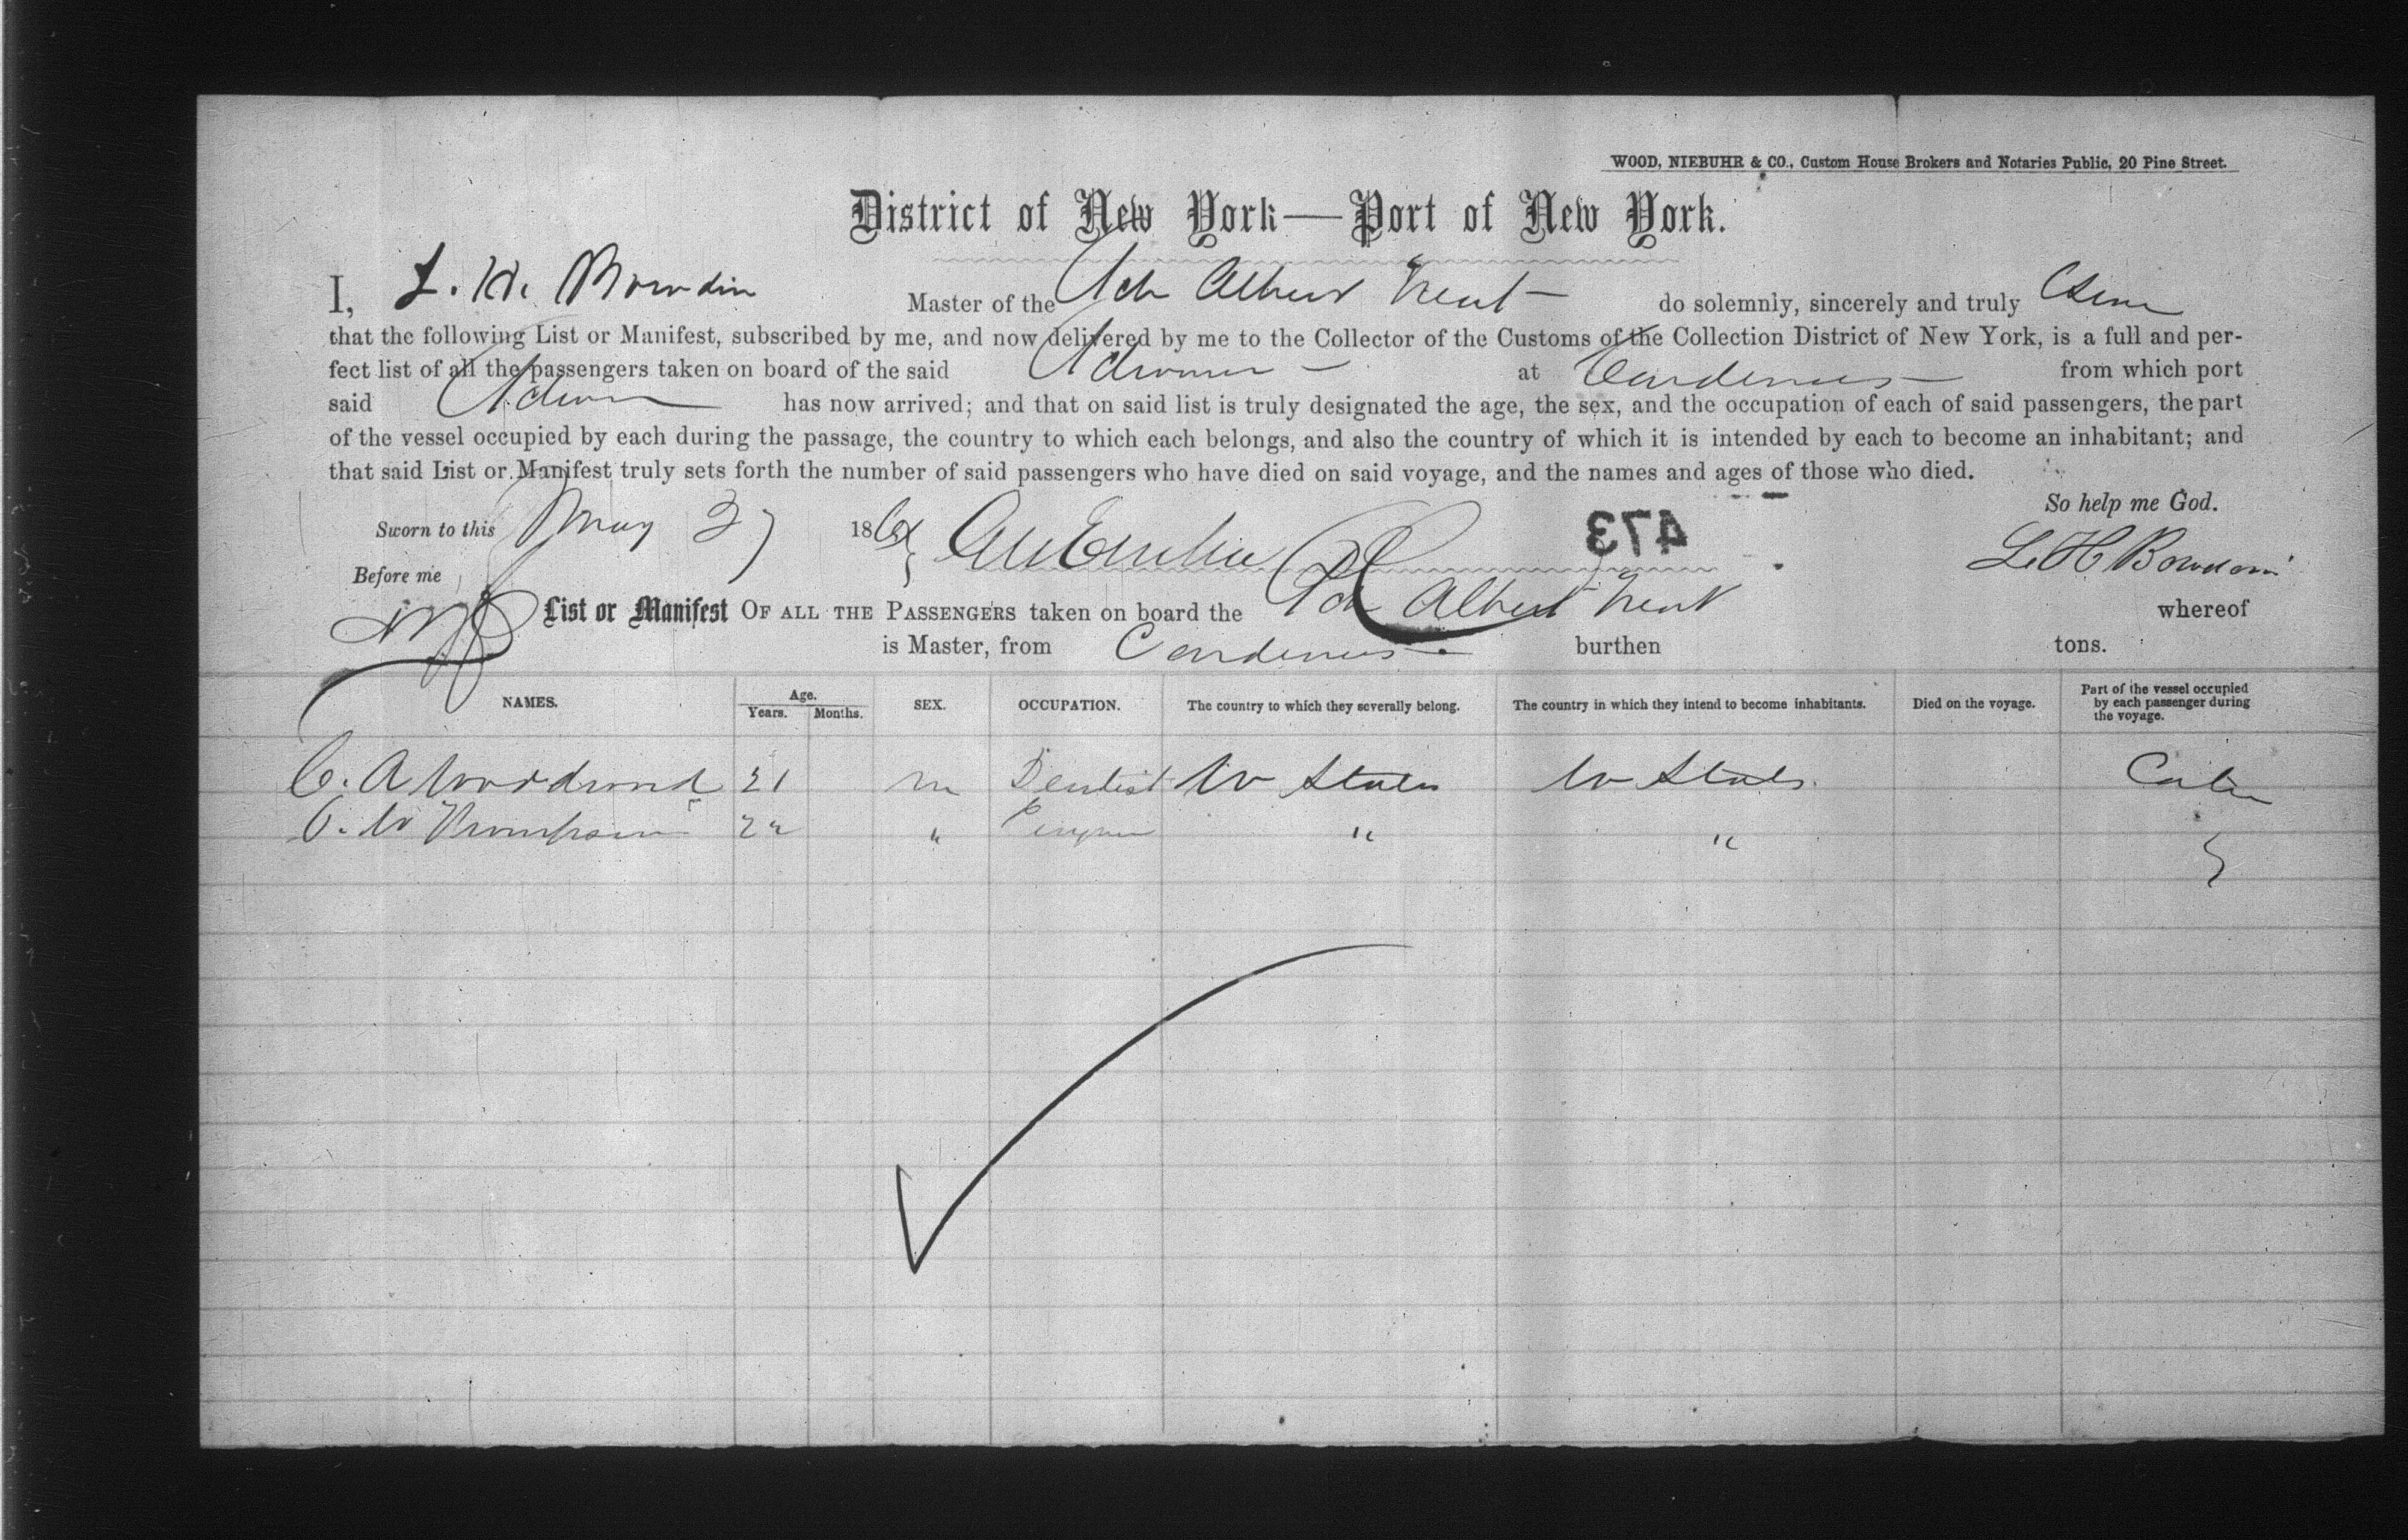 WOOD, NIEBUHR & CO., Custom House Brokers and Notaries Public, 20 Pine Street.
District of New York—Port of New York.
I, L. H. Bowdin Master of the Sch Albert Treat do solemnly, sincerely and truly
that the following List or Manifest, subscribed by me, and now delivered by me to the Collector of the Customs of the Collection District of New York, is a full and per-
fect list of all the passengers taken on board of the said at Cardenas from which port
said has now arrived; and that on said list is truly designated the age, the sex, and the occupation of each of said passengers, the part
of the vessel occupied by each during the passage, the country to which each belongs, and also the country of which it is intended by each to become an inhabitant; and
that said List or Manifest truly sets forth the number of said passengers who have died on said voyage, and the names and ages of those who died.
So help me God.
Sworn to this May 27 186 473
L. H. Bowden
Before me
List or Manifest OF ALL THE PASSENGERS taken on board the Sch Albert Treat whereof
is Master, from Cardenas burthen tons.
NAMES. Age. Years. Months. SEX. OCCUPATION. The country to which they severally belong. The country in which they intend to become inhabitants. Died on the voyage. Part of the vessel occupied by each passenger during the voyage.
C. A Woodward 21 m Dentist U States U States. Cabin
C. W Thompson 22 " " "